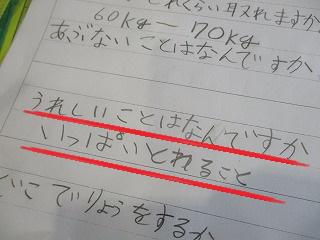 くらい取れますか
60kg〜70kg
あぶないことはなんですか
うれしいことはなんですか
いっぱいとれること
どこでりょうをするか